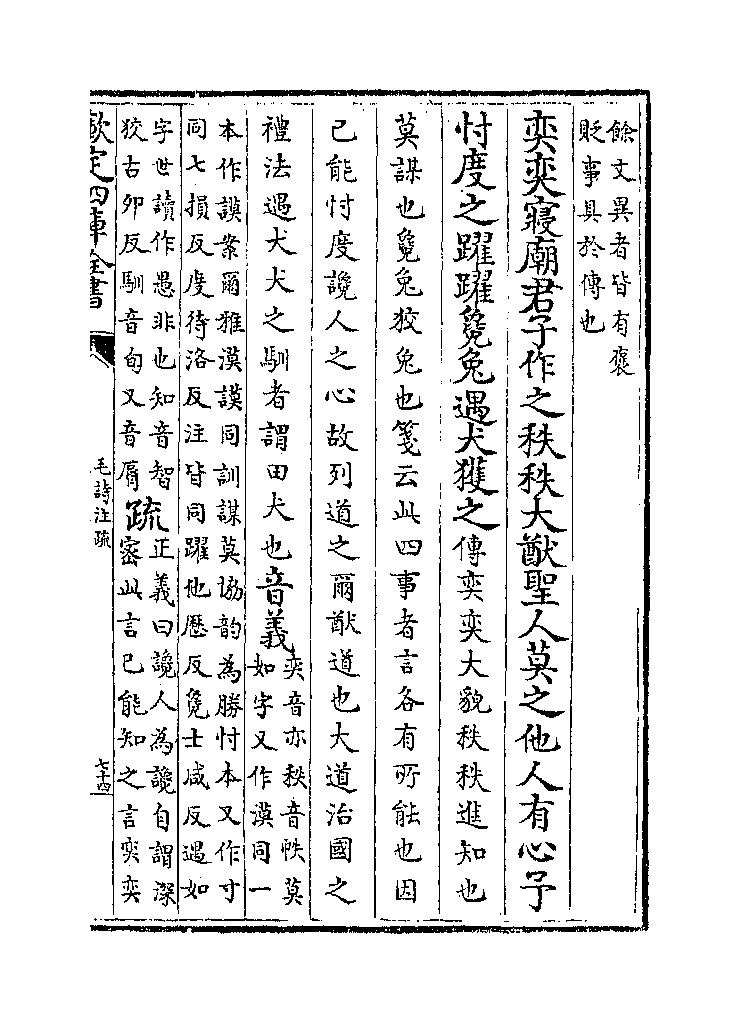 餘文異者皆有襃
貶事具於傳也
奕奕寢廟君子作之秩秩大猷聖人莫之他人有心予
忖度之躍躍毚兔遇犬獲之傳奕奕大貌秩秩進知也
莫謀也毚兔狡兔也箋云此四事者言各有所能也因
己能忖度讒人之心故列道之爾猷道也大道治國之
禮法遇犬犬之馴者謂田犬也音義奕音亦秩音帙莫
如字又作漠同一
本作謨案爾雅漠謨同訓謀莫協韵為勝忖本又作寸
同七損反度待洛反注皆同躍他歷反毚士咸反遇如
字世讀作愚非也知音智
狡古卯反馴音旬又音脣疏正義曰讒人為讒自謂深
密此言己能知之言奕奕
欽定四庫全書
毛詩注疏
七十四